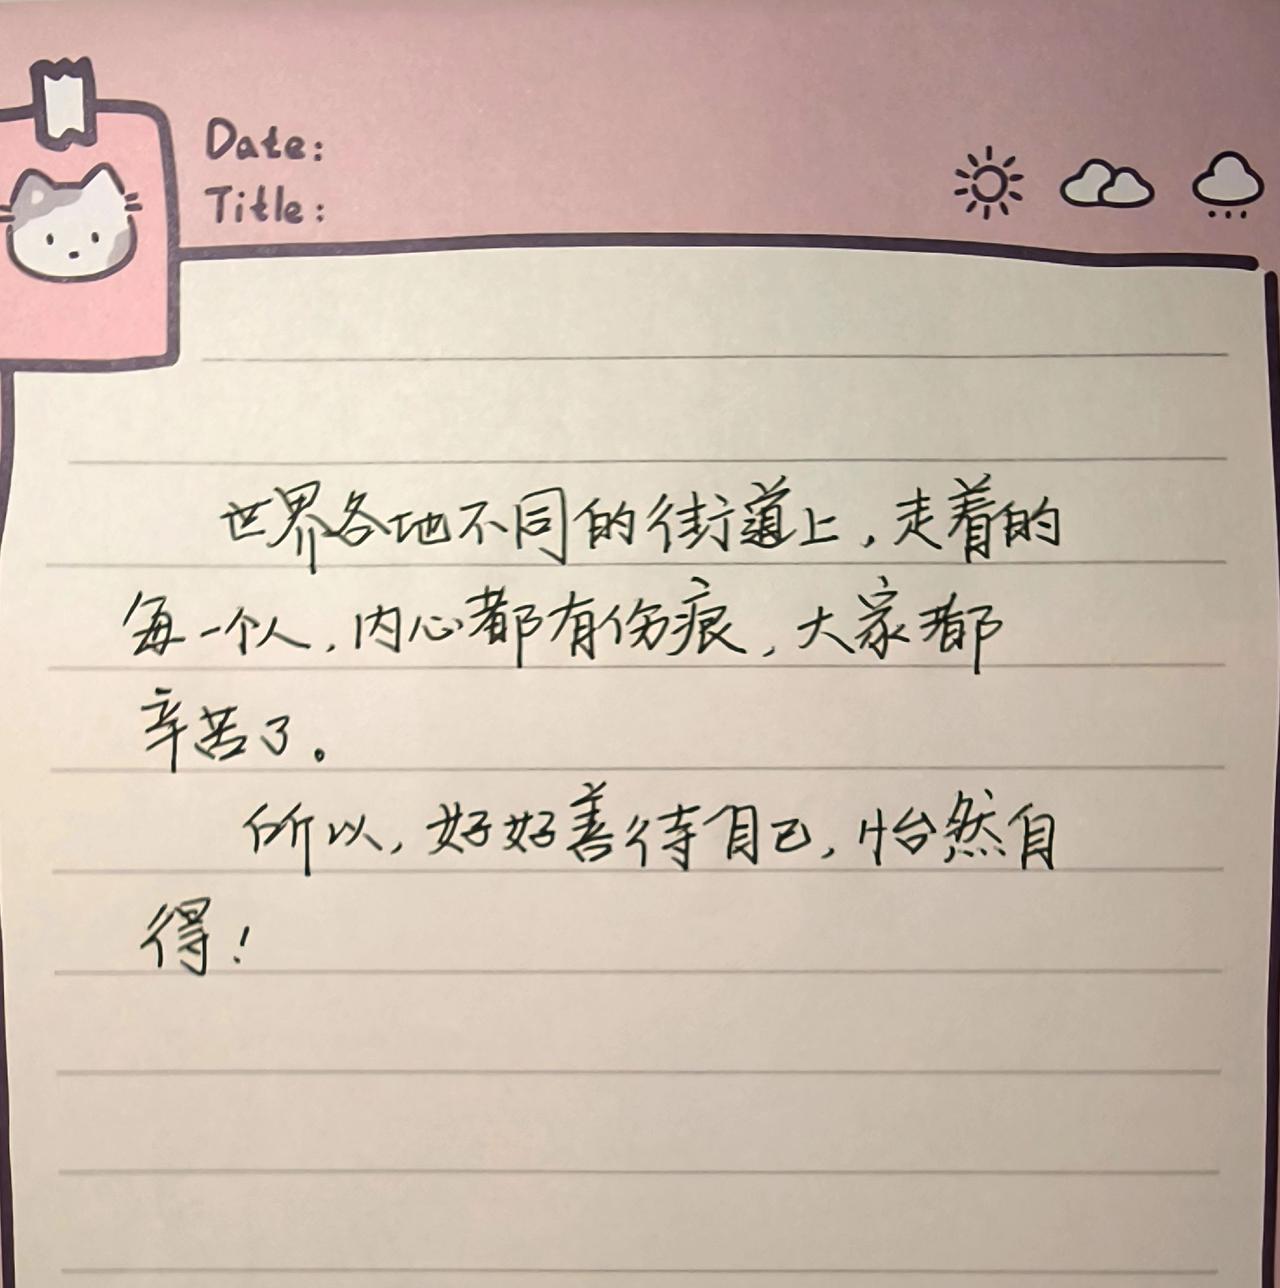 Date:
Title:
世界各地不同的街道上，走着的
每一个人，内心都有伤痕，大家都
辛苦了。
所以，好好善待自己，怡然自
得！